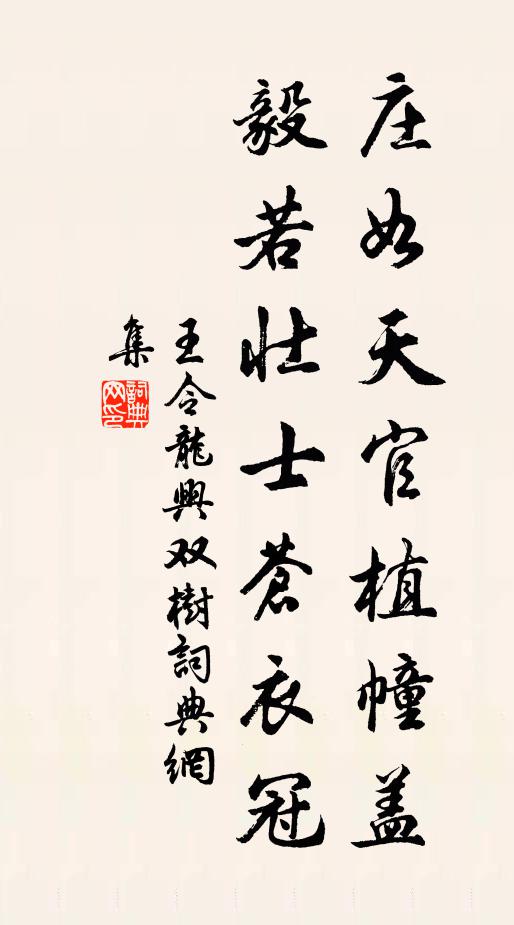 庄如天官植幢盖
毅若壮士苍衣冠
王令龍興双樹詞典網
集
詞典網印